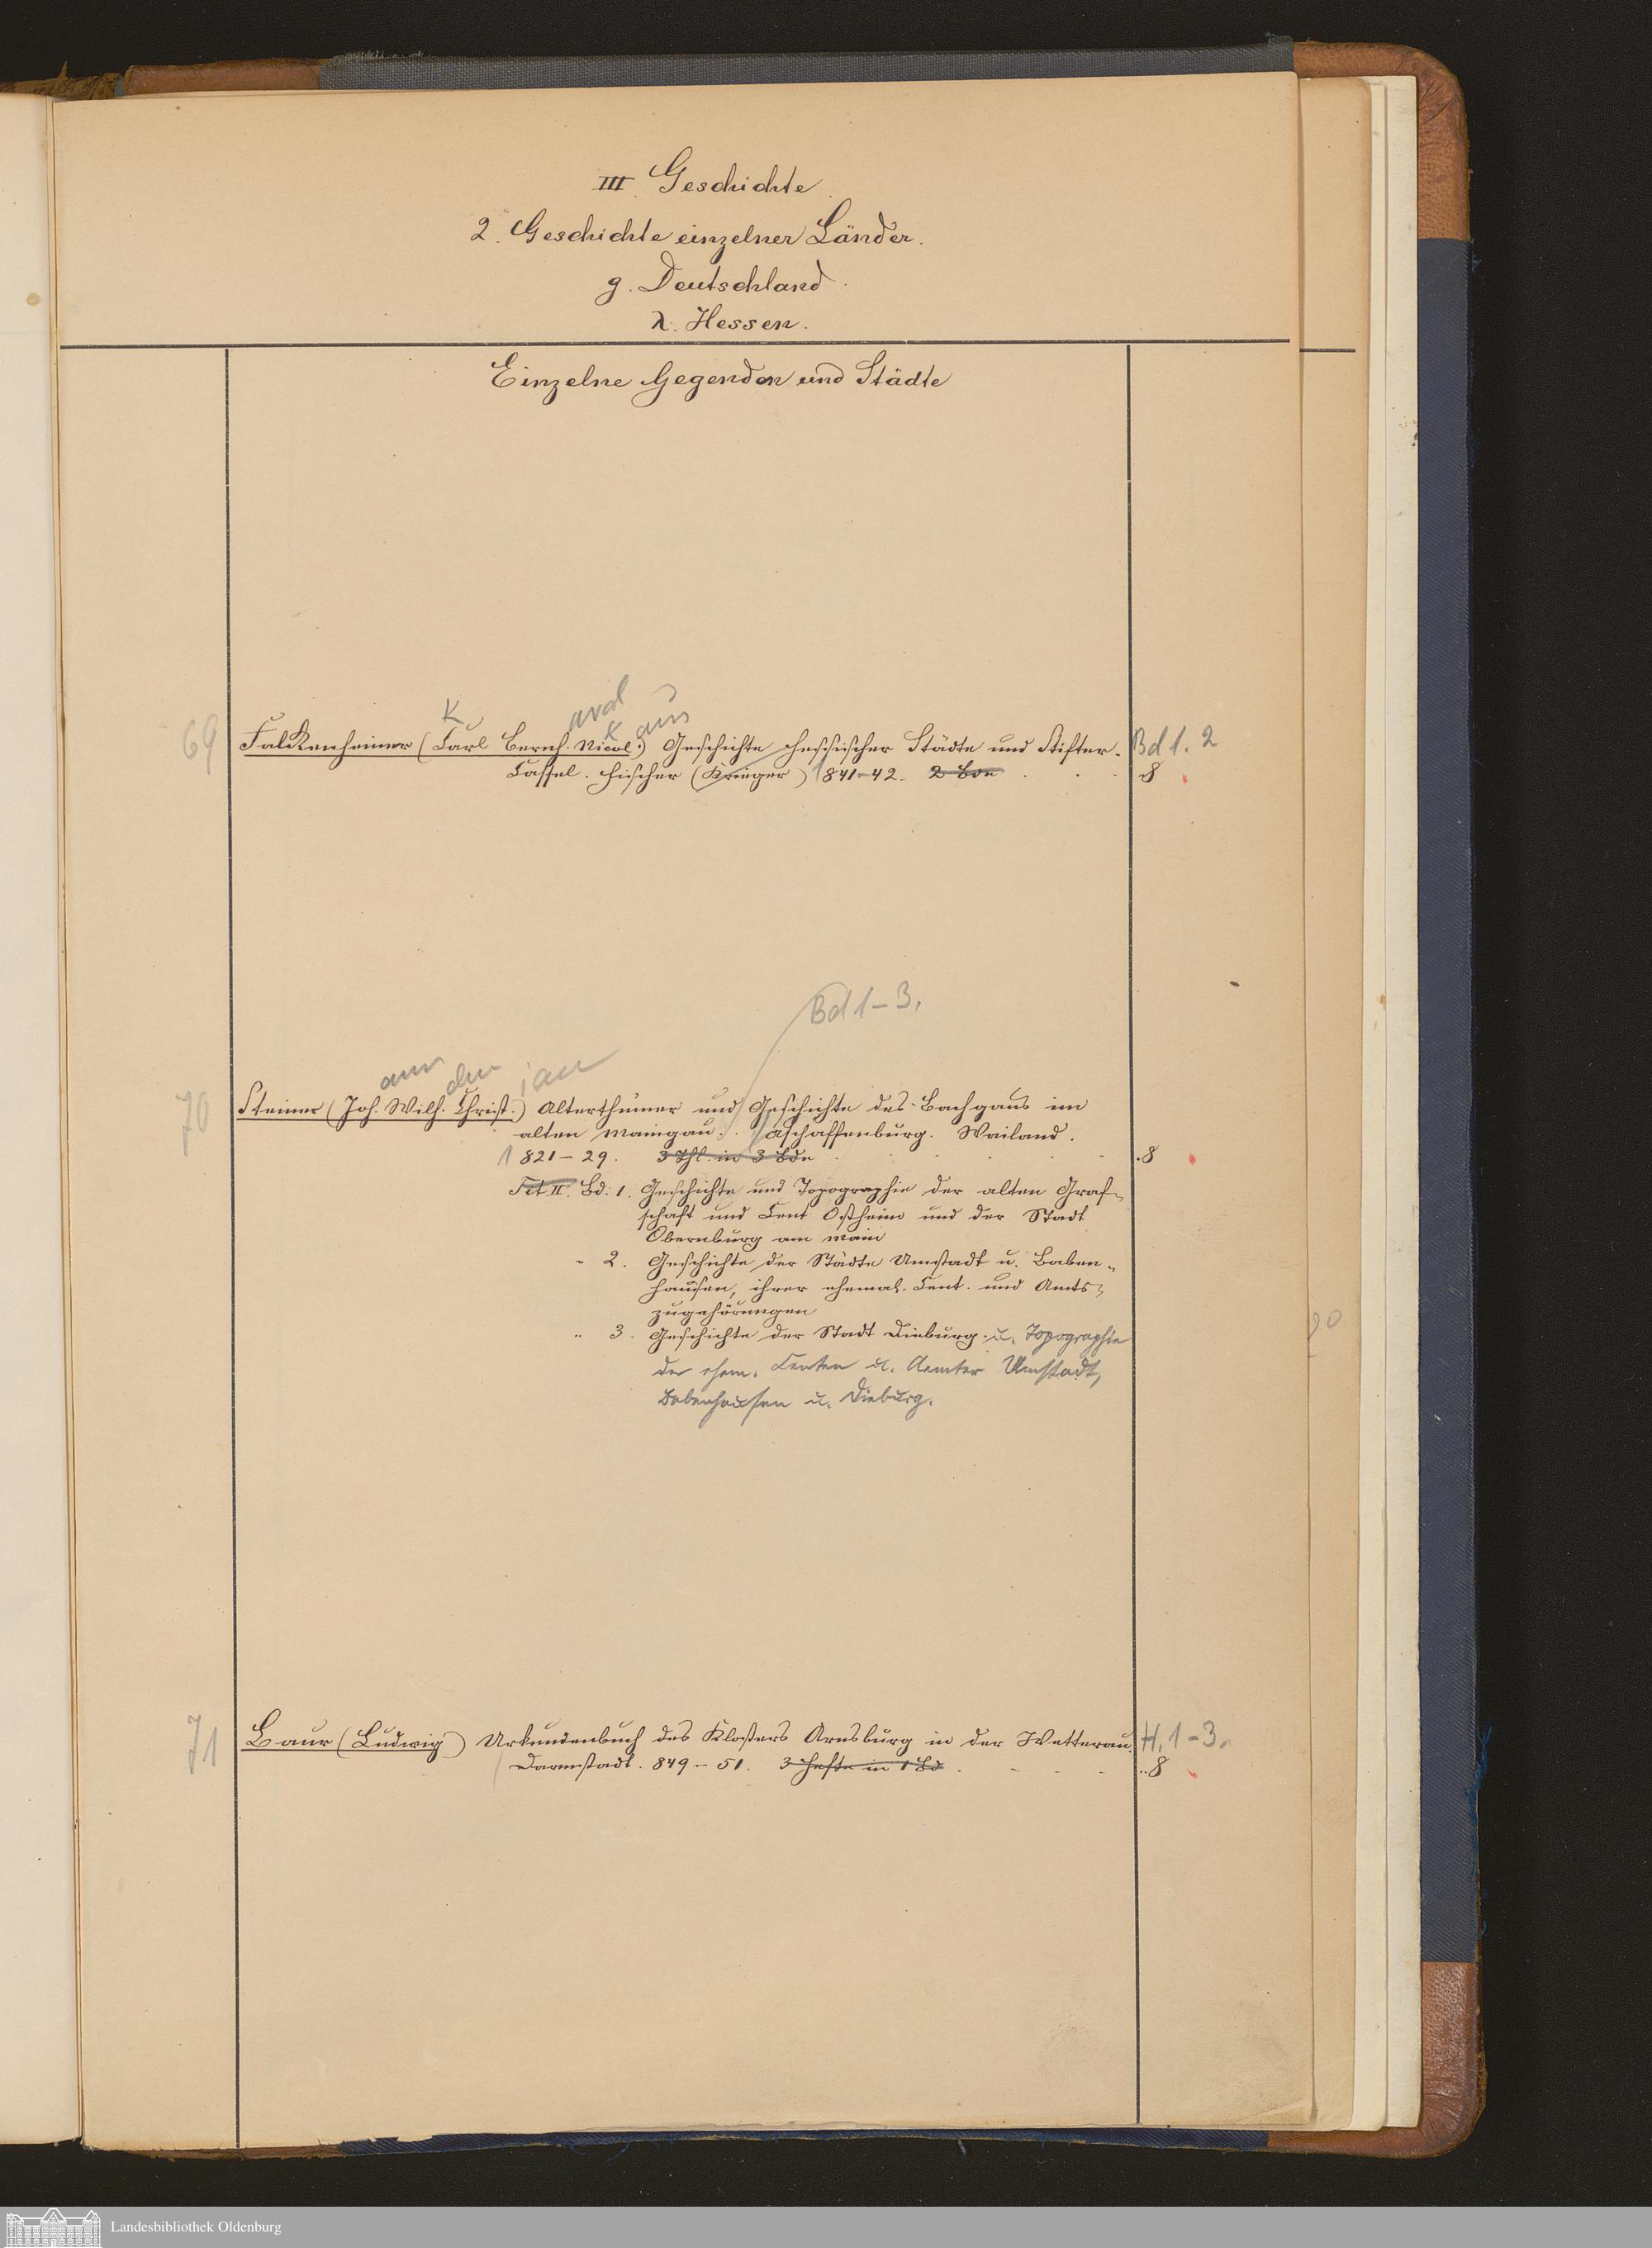 III. Geschichte
2. Geschichte einzelner Länder.
g. Deutschland.
λ. Hessen.
Einzelne Gegenden und Städte
K ard K aus
69 Falckenheiner (Carl Bernh. Nicol.) Geschichte hessischer Städte und Stifter. Bd 1. 2
Cassel. Fischer (Krieger) 1841-42. 2 Bde 8
Bd 1-3.
ann elm ian
70 Steiner (Joh. Wilh. Christ.) Alterthümer und Geschichte des Bachgaus im
alten Maingau. Aschaffenburg. Wailand.
1821-29. 3 Thl. in 3 Bde 8
Tit II. Bd. 1. Geschichte und Topographie der alten Graf-
schaft und Cent Ostheim und der Stadt
Obernburg am Main
" 2. Geschichte der Städte Umstadt u. Baben-
hausen, ihrer ehemal. Cent. und Amts-
zugehörungen
" 3. Geschichte der Stadt Dieburg. u. Topographie
der ehem. Centen u. Aemter Umstadt,
Babenhausen u. Dieburg.
71 Baur (Ludwig) Urkundenbuch des Klosters Arnsburg in der Wetterau. H. 1-3.
Darmstadt. 1849-51. 3 Hefte in 1 Bd 8
Landesbibliothek Oldenburg